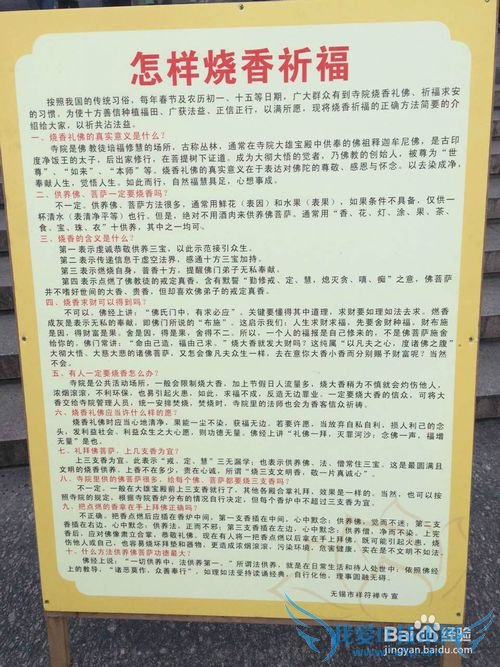 怎样烧香祈福
按照我国的传统习俗，每年春节及农历初一、十五等日期，广大群众有到寺院烧香礼佛、祈福求安
的习惯。为使十方善信种植福田、广获法益、正信正行，以满所愿，现将烧香祈福的正确方法简要的介
绍给大家，以祈共沾法益。
一、烧香礼佛的真实意义是什么？
寺院是佛教徒培福修慧的场所，古称丛林，通常在寺院大雄宝殿中供奉的佛祖释迦牟尼佛，是古印
度净饭王的太子，后出家修行，在菩提树下证道。成为大彻大悟的觉者，乃佛教的创始人，被尊为“世
尊”、“如来”、“本师”等。烧香礼佛的真实意义在于表达对佛陀的尊敬、感恩与怀念。以去染成净，
奉献人生，觉悟人生。如此而行，自然福慧具足，心想事成。
二、供养佛、菩萨一定要烧香吗？
不一定。供养佛、菩萨方法很多，通常用鲜花（表因）和水果（表果），如果条件不具备，仅供一
杯清水（表清净平等）也行。但是，绝对不用酒肉来供养佛菩萨。通常用“香、花、灯、涂、果、茶、
食、宝、珠、衣”十供养，其中之一均可。
三、烧香的含义是什么？
第一表示虔诚恭敬供养三宝，以此示范接引众生。
第二表示传递信息于虚空法界，感通十方三宝加持。
第三表示燃烧自身，普香十方，提醒佛门弟子无私奉献。
第四表示点燃了佛教徒的戒定真香，含有默誓“勤修戒、定、慧，熄灭贪、嗔、痴”之意，佛菩萨
并不嗜好世间的大香、贵香，但却喜欢佛弟子的戒定真香。
四、烧香求财可以得到吗？
不可以。佛经上讲：“佛氏门中，有求必应”。关键要懂得其中道理，求财要如理如法去求。燃香
成灰是表示无私的奉献，即佛门所说的“布施”。这启示我们：人生求财求福，先要舍财种福。财布施
是因，得财富是果。舍是因，得是果，舍得不二。所以，一个人的福报是自己修来的，不是佛菩萨施舍
给你的。佛门常讲：“命由己造，福由己求。”烧大香就发大财吗？这纯属“以凡夫之心，度诸佛之腹”
大彻大悟、大慈大悲的诸佛菩萨，又怎会像凡夫众生一样，去在意你大香小香而分别赐予财富呢？当然
不会。
五、有人一定要烧香怎么办？
寺院是公共活动场所，一般会限制烧大香。加上节假日人流量多，烧大香稍为不慎就会灼伤他人，
浓烟滚滚，不利环保，也易引起火患，如此，求福不成，反造无边罪业。一定要烧大香的信众，可将大
香交给寺院管理人员，统一安排焚烧。焚烧时，寺院里的法师也会为香客信众祈祷。
六、烧香礼佛应当许什么样的愿？
烧香礼佛时应当心地清净，果能一尘不染，获福无边。若要许愿，当放弃自私自利，损人利己的念
头，发利益社会、利益众生之大心愿，则功德无量。佛经上讲“礼佛一拜，灭罪河沙；念佛一声，福增
无量”是也。
七、礼拜佛菩萨，上几支香为宜？
上三支香为宜。此表示“戒、定、慧”三无漏学；也表示供养佛、法、僧常住三宝。这是最圆满且
文明的烧香供养。上香不在多少，贵在心诚，所谓“烧三支文明香，敬一片真诚心”。
八、寺院里供的佛菩萨很多，给每个佛、菩萨都要烧三支香吗？
不一定。一般在大雄宝殿前上三支香就行了，其他各殿合掌礼拜，效果是一样的。当然，也可以按
照寺院的规定，根据寺院香炉分布的情况自行决定，但每个香炉中不超过三支香为宜。
九、把点燃的香拿在手上拜佛正确吗？
不正确。把香点燃后应插在香炉中间，第一支香插在中间，心中默念：供养佛，觉而不迷；第二支
香插在右边，心中默念：供养法，正而不邪；第三支香插在左边，心中默念：供养僧，净而不染。上完
香后，应对佛像肃立合掌，恭敬礼佛。现在有人将一把香点燃以后拿在手上拜佛，既可能引起火患，烧
伤他人或自己，也容易烧坏拜垫和器物，更造成浓烟滚滚，污染环境，危害健康，实在是不文明不如法。
十、什么方法供养佛菩萨功德最大？
佛经上说：“一切供养中，法供养第一。”所谓法供养，就是在日常生活和待人处世中；依照佛经
上的教导，“诸恶莫作，众善奉行”，如理如法受持读诵经典，自行化他，理事圆融无碍。
无锡市祥符禅寺 宣
Baidu经验
jingyan.baidu.com